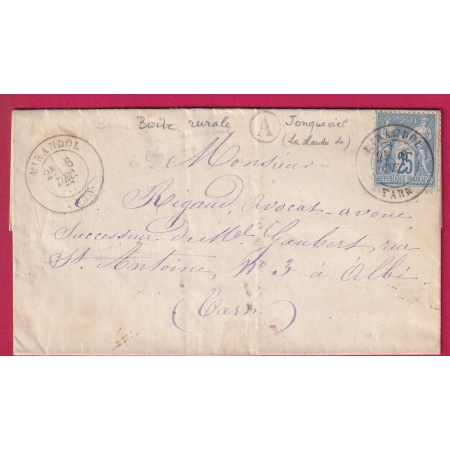 Boite rurale A Jonqueviel
(La Lande de)
MIRANDOL
6
DEC
MIRANDOL
TARN
POSTES
25
REPUBLIQUE FRANCAISE
Monsieur
E. Rigaud, avocat-avoué
Successeur de Me Gaubert, rue
St. Antoine, No 3 à Albi
(Tarn)